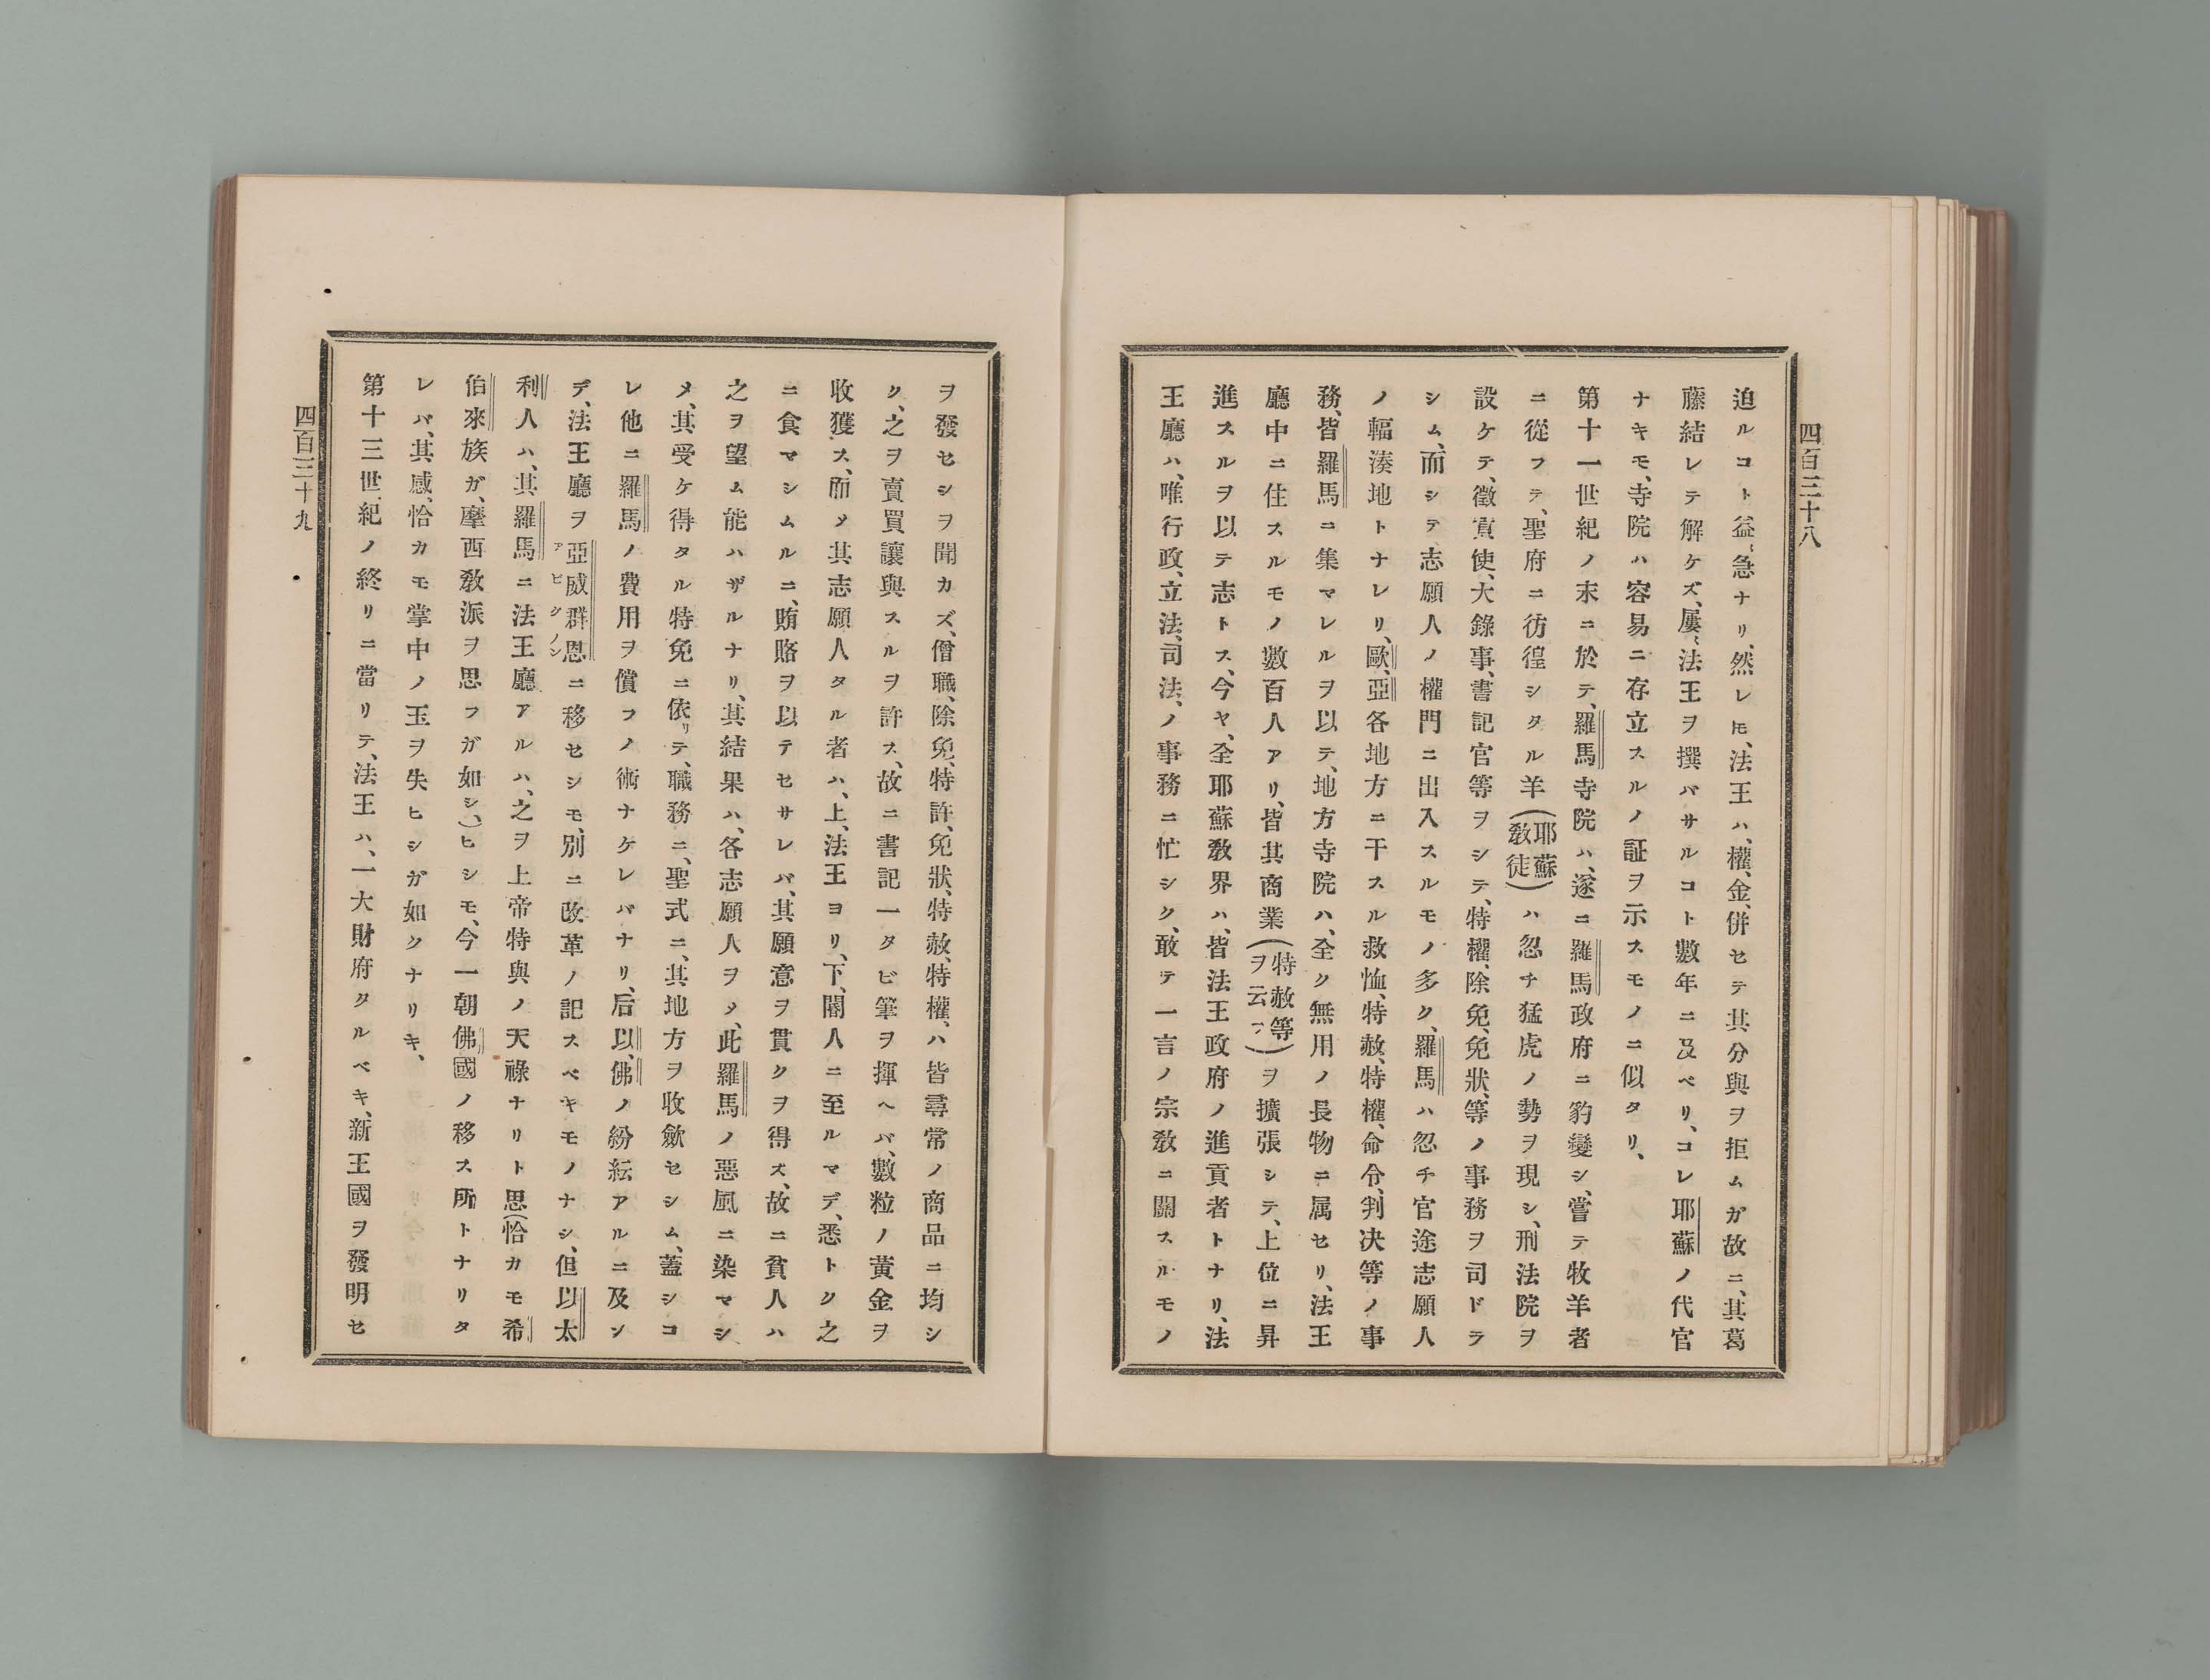 四百三十八
迫ルコト益〻急ナリ、然レ𪜈、法王ハ、權、金、併セテ其分與ヲ拒ムガ故ニ、其葛
藤結レテ解ケズ、屢〻法王ヲ撰バサルコト數年ニ及ベリ、コレ耶蘇ノ代官
ナキモ、寺院ハ容易ニ存立スルノ証ヲ示スモノニ似タリ、
第十一世紀ノ末ニ於テ、羅馬寺院ハ、遂ニ羅馬政府ニ豹變シ、嘗テ牧羊者
ニ從フテ、聖府ニ彷徨シタル羊(耶蘇敎徒)ハ忽チ猛虎ノ勢ヲ現シ、刑法院ヲ
設ケテ、徵貢使、大錄事、書記官等ヲシテ、特權、除免、免狀、等ノ事務ヲ司ドラ
シム、而シテ志願人ノ權門ニ出入スルモノ多ク、羅馬ハ忽チ官途志願人
ノ輻湊地トナレリ、歐、亞各地方ニ干スル救恤、特赦、特權、命令、判决等ノ事
務、皆羅馬ニ集マレルヲ以テ、地方寺院ハ、全ク無用ノ長物ニ属セリ、法王
廳中ニ住スルモノ數百人アリ、皆其商業(特赦等ヲ云フ)ヲ擴張シテ、上位ニ昇
進スルヲ以テ志トス、今ヤ、全耶蘇敎界ハ、皆法王政府ノ進貢者トナリ、法
王廳ハ、唯行政、立法、司法、ノ事務ニ忙シク、敢テ一言ノ宗敎ニ關スルモノ
ヲ發セシヲ聞カズ、僧職、除免、特許、免狀、特赦、特權、ハ皆尋常ノ商品ニ均シ
ク、之ヲ賣買讓與スルヲ許ス、故ニ書記一タビ筆ヲ揮ヘバ、數粒ノ黃金ヲ
收獲ス、而ノ其志願人タル者ハ、上、法王ヨリ、下、閽人ニ至ルマデ、悉トク之
ニ食マシムルニ、賄賂ヲ以テセサレバ、其願意ヲ貫クヲ得ズ、故ニ貧人ハ
之ヲ望ム能ハザルナリ、其結果ハ、各志願人ヲメ、此羅馬ノ惡風ニ染マシ
メ、其受ケ得タル特免ニ依リテ、職務ニ、聖式ニ、其地方ヲ收歛セシム、蓋シコ
レ他ニ羅馬ノ費用ヲ償フノ術ナケレバナリ、后以、佛ノ紛紜アルニ及ン
デ、法王廳ヲ亞威群恩アビグノンニ移セシモ、別ニ改革ノ記スベキモノナシ、但以太
利人ハ、其羅馬ニ法王廳アルハ、之ヲ上帝特與ノ天祿ナリト思(恰カモ希
伯來族ガ、摩西敎派ヲ思フガ如シ、)ヒシモ、今一朝佛國ノ移ス所トナリタ
レバ、其感、恰カモ掌中ノ玉ヲ失ヒシガ如クナリキ、
第十三世紀ノ終リニ當リテ、法王ハ、一大財府タルベキ、新王國ヲ發明セ
四百三十九